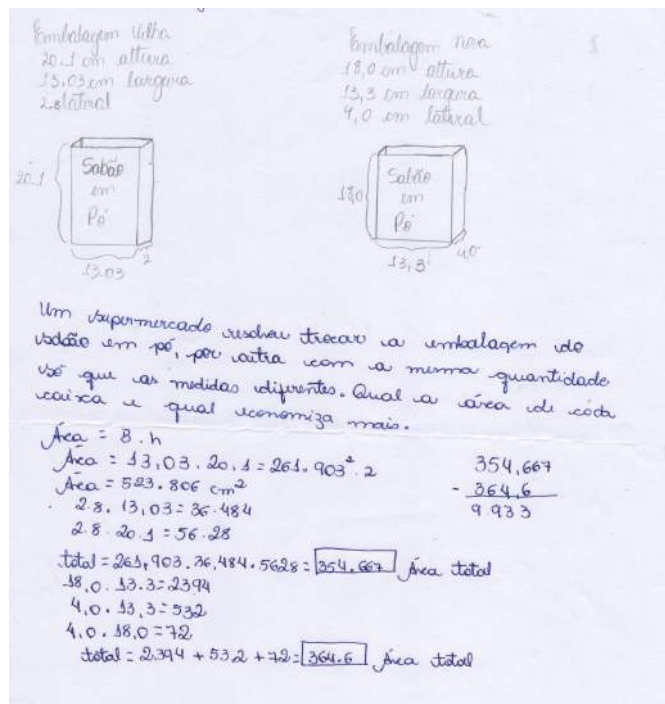 Embalagem Velha
20.1 cm altura
13,03 cm largura
2.8 latiral
Embalagem nova
18,0 cm altura
13,3 cm largura
4,0 cm latiral
20.1
Sabão
em
Pó
13.03
2
18,0
Sabão
em
Pó
13,3
4,0
Um supermercado resolveu trocar a embalagem do
sabão em pó, por outra com a mesma quantidade
só que as medidas diferentes. Qual a área de cada
caixa e qual economiza mais.
Área = B.h
Área = 13,03 . 20,1 = 261.903² . 2
Área = 523.806 cm²
2.8 . 13,03 = 36.484
2.8 . 20.1 = 56.28
total = 261,903 . 36,484 . 5628 = 354,667 Área total
18,0 . 13.3 = 2394
4,0 . 13,3 = 532
4,0 . 18,0 = 72
total = 2.394 + 53,2 + 72 = 364.6 Área total
354,667
- 364,6
9.933